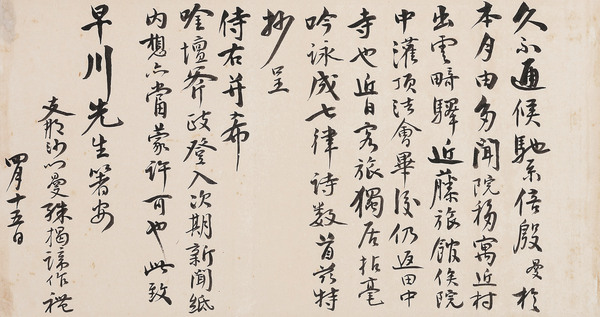 久不通候馳系倍殷曼於
本月由多聞院移寓近村
出雲疇驛近藤旅館俟院
中灌頂法會畢後仍返田中
寺也近日客旅獨居拈毫
吟詠成七律詩數首茲特
抄呈
侍右并希
唫壇斧政登入次期新聞紙
內想亦當蒙許可也此致
早川先生箸安
支那沙門曼殊揭諦作禮
四月十五日